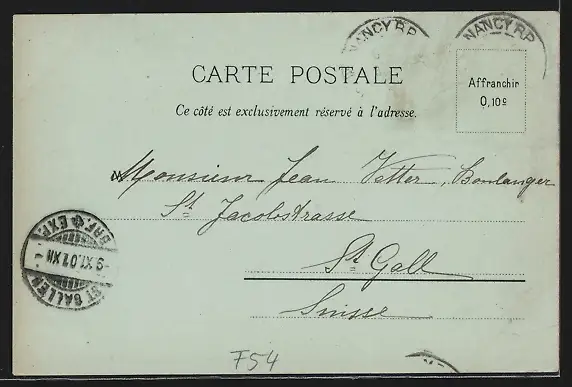 NANCY R.P. NANCY R.P.
CARTE POSTALE
Affranchir
0,10c
Ce côté est exclusivement réservé à l'adresse.
Monsieur Jean Vetter, Boulanger
St Jacobstrasse
St Gall
Suisse
BRF. EXP.
-9.XI.01.XII-
ST. GALLEN
F54